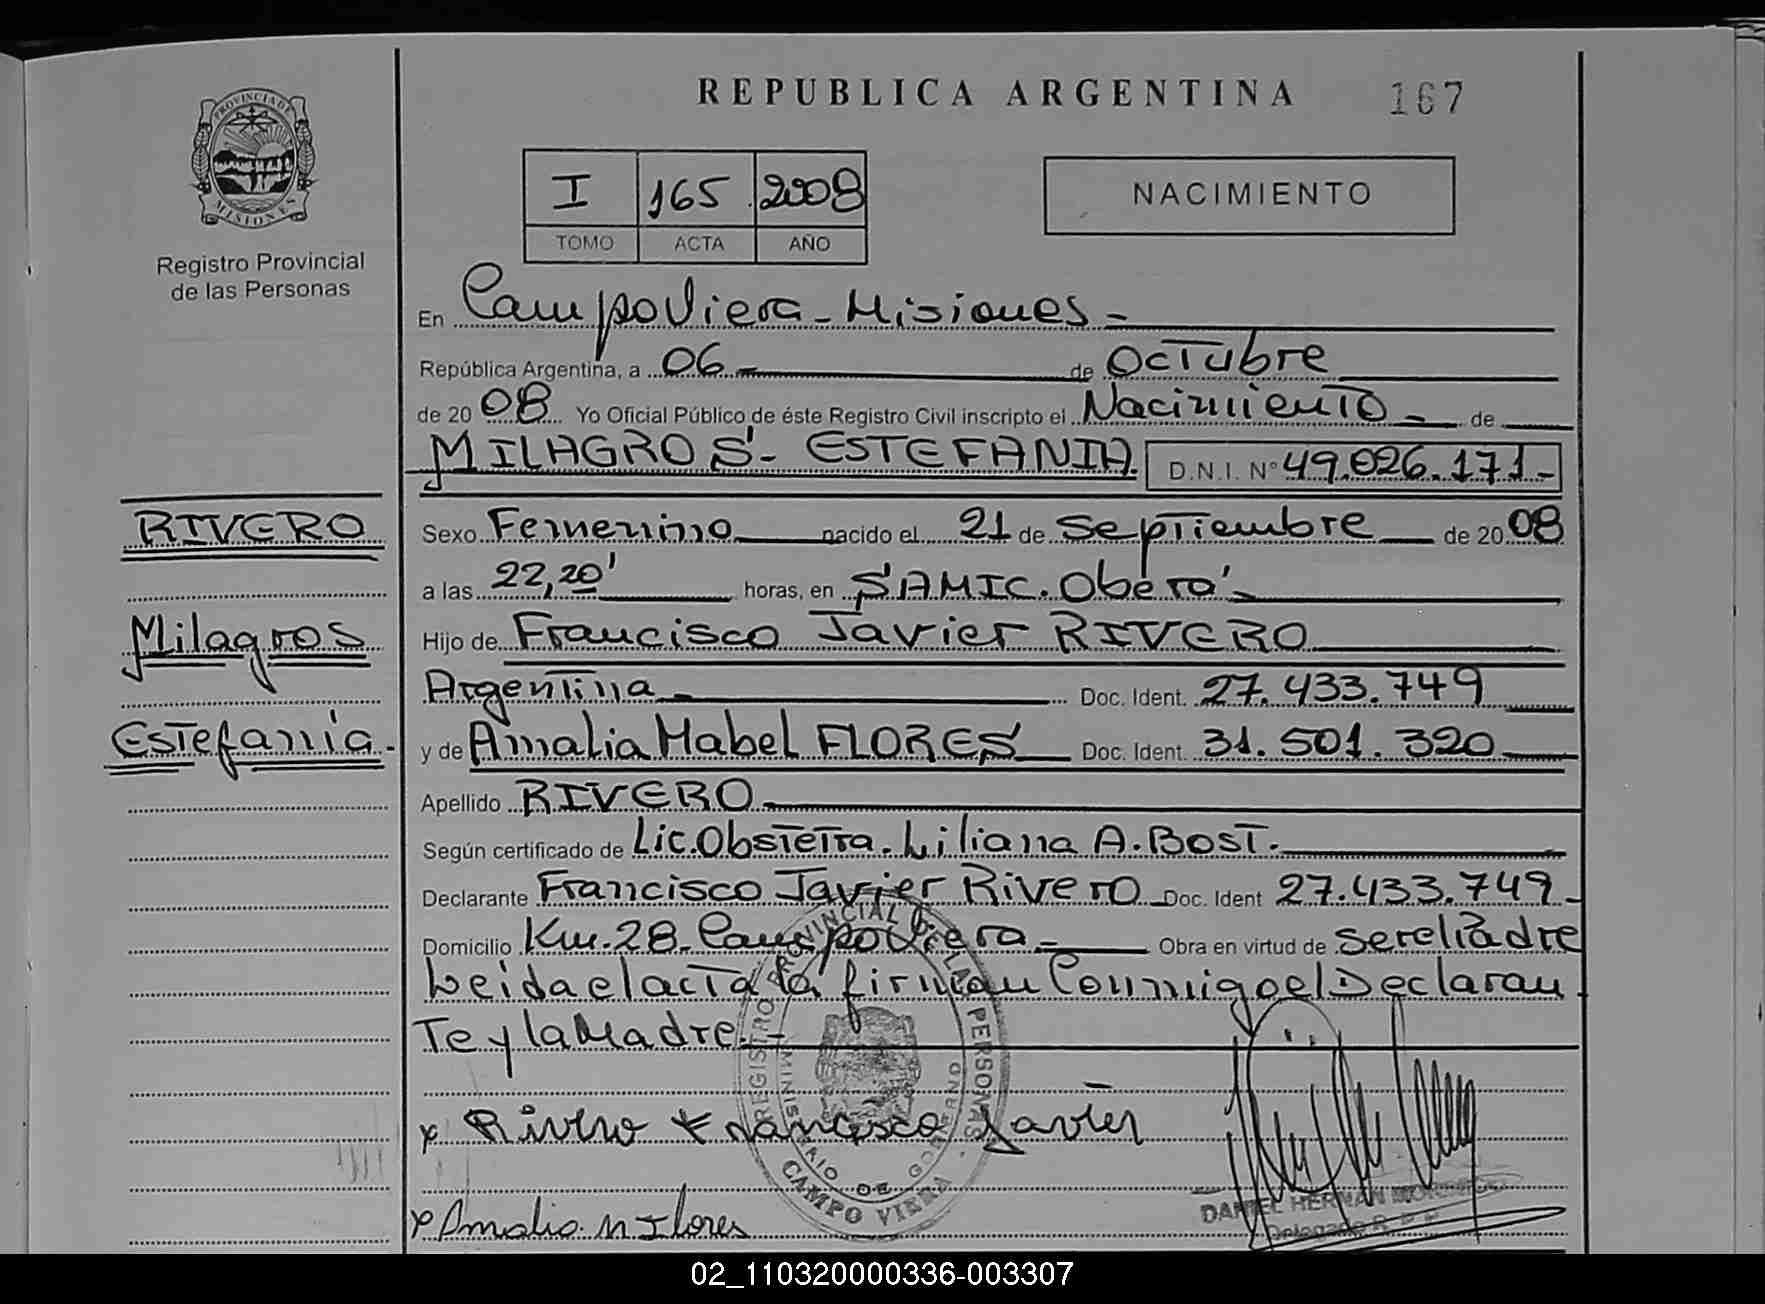 REPUBLICA ARGENTINA
167
PROVINCIA DE
MISIONES
Registro Provincial
de las Personas
I 165 2008
TOMO ACTA AÑO
NACIMIENTO
En Campo Viera - Misiones -
República Argentina, a 06 - de Octubre
de 20 08 Yo Oficial Público de éste Registro Civil inscripto el Nacimiento - de
MILAGROS - ESTEFANIA D.N.I. N° 49.026.171 -
RIVERO
Milagros
Estefanía -
Sexo Femenino nacido el 21 de Septiembre de 20 08
a las 22,20' horas, en SAMIC. Oberá -
Hijo de Francisco Javier RIVERO
Argentina - Doc. Ident. 27.433.749
y de Amalia Mabel FLORES Doc. Ident. 31.501.320
Apellido RIVERO
Según certificado de Lic. Obstetra. Liliana A. Bost.
Declarante Francisco Javier Rivero Doc. Ident 27.433.749 -
Domicilio Km. 28 - Campo Viera - Obra en virtud de ser el Padre
Leida el acta la firman Conmigo el Declaran
Te y la Madre. -
REGISTRO PROVINCIAL DE LAS PERSONAS
MINISTERIO DE GOBIERNO
CAMPO VIERA
x Rivero Francisco Javier
x Amalia M Flores
DANIEL HERNAN
Delegado R. P. P.
02_110320000336-003307